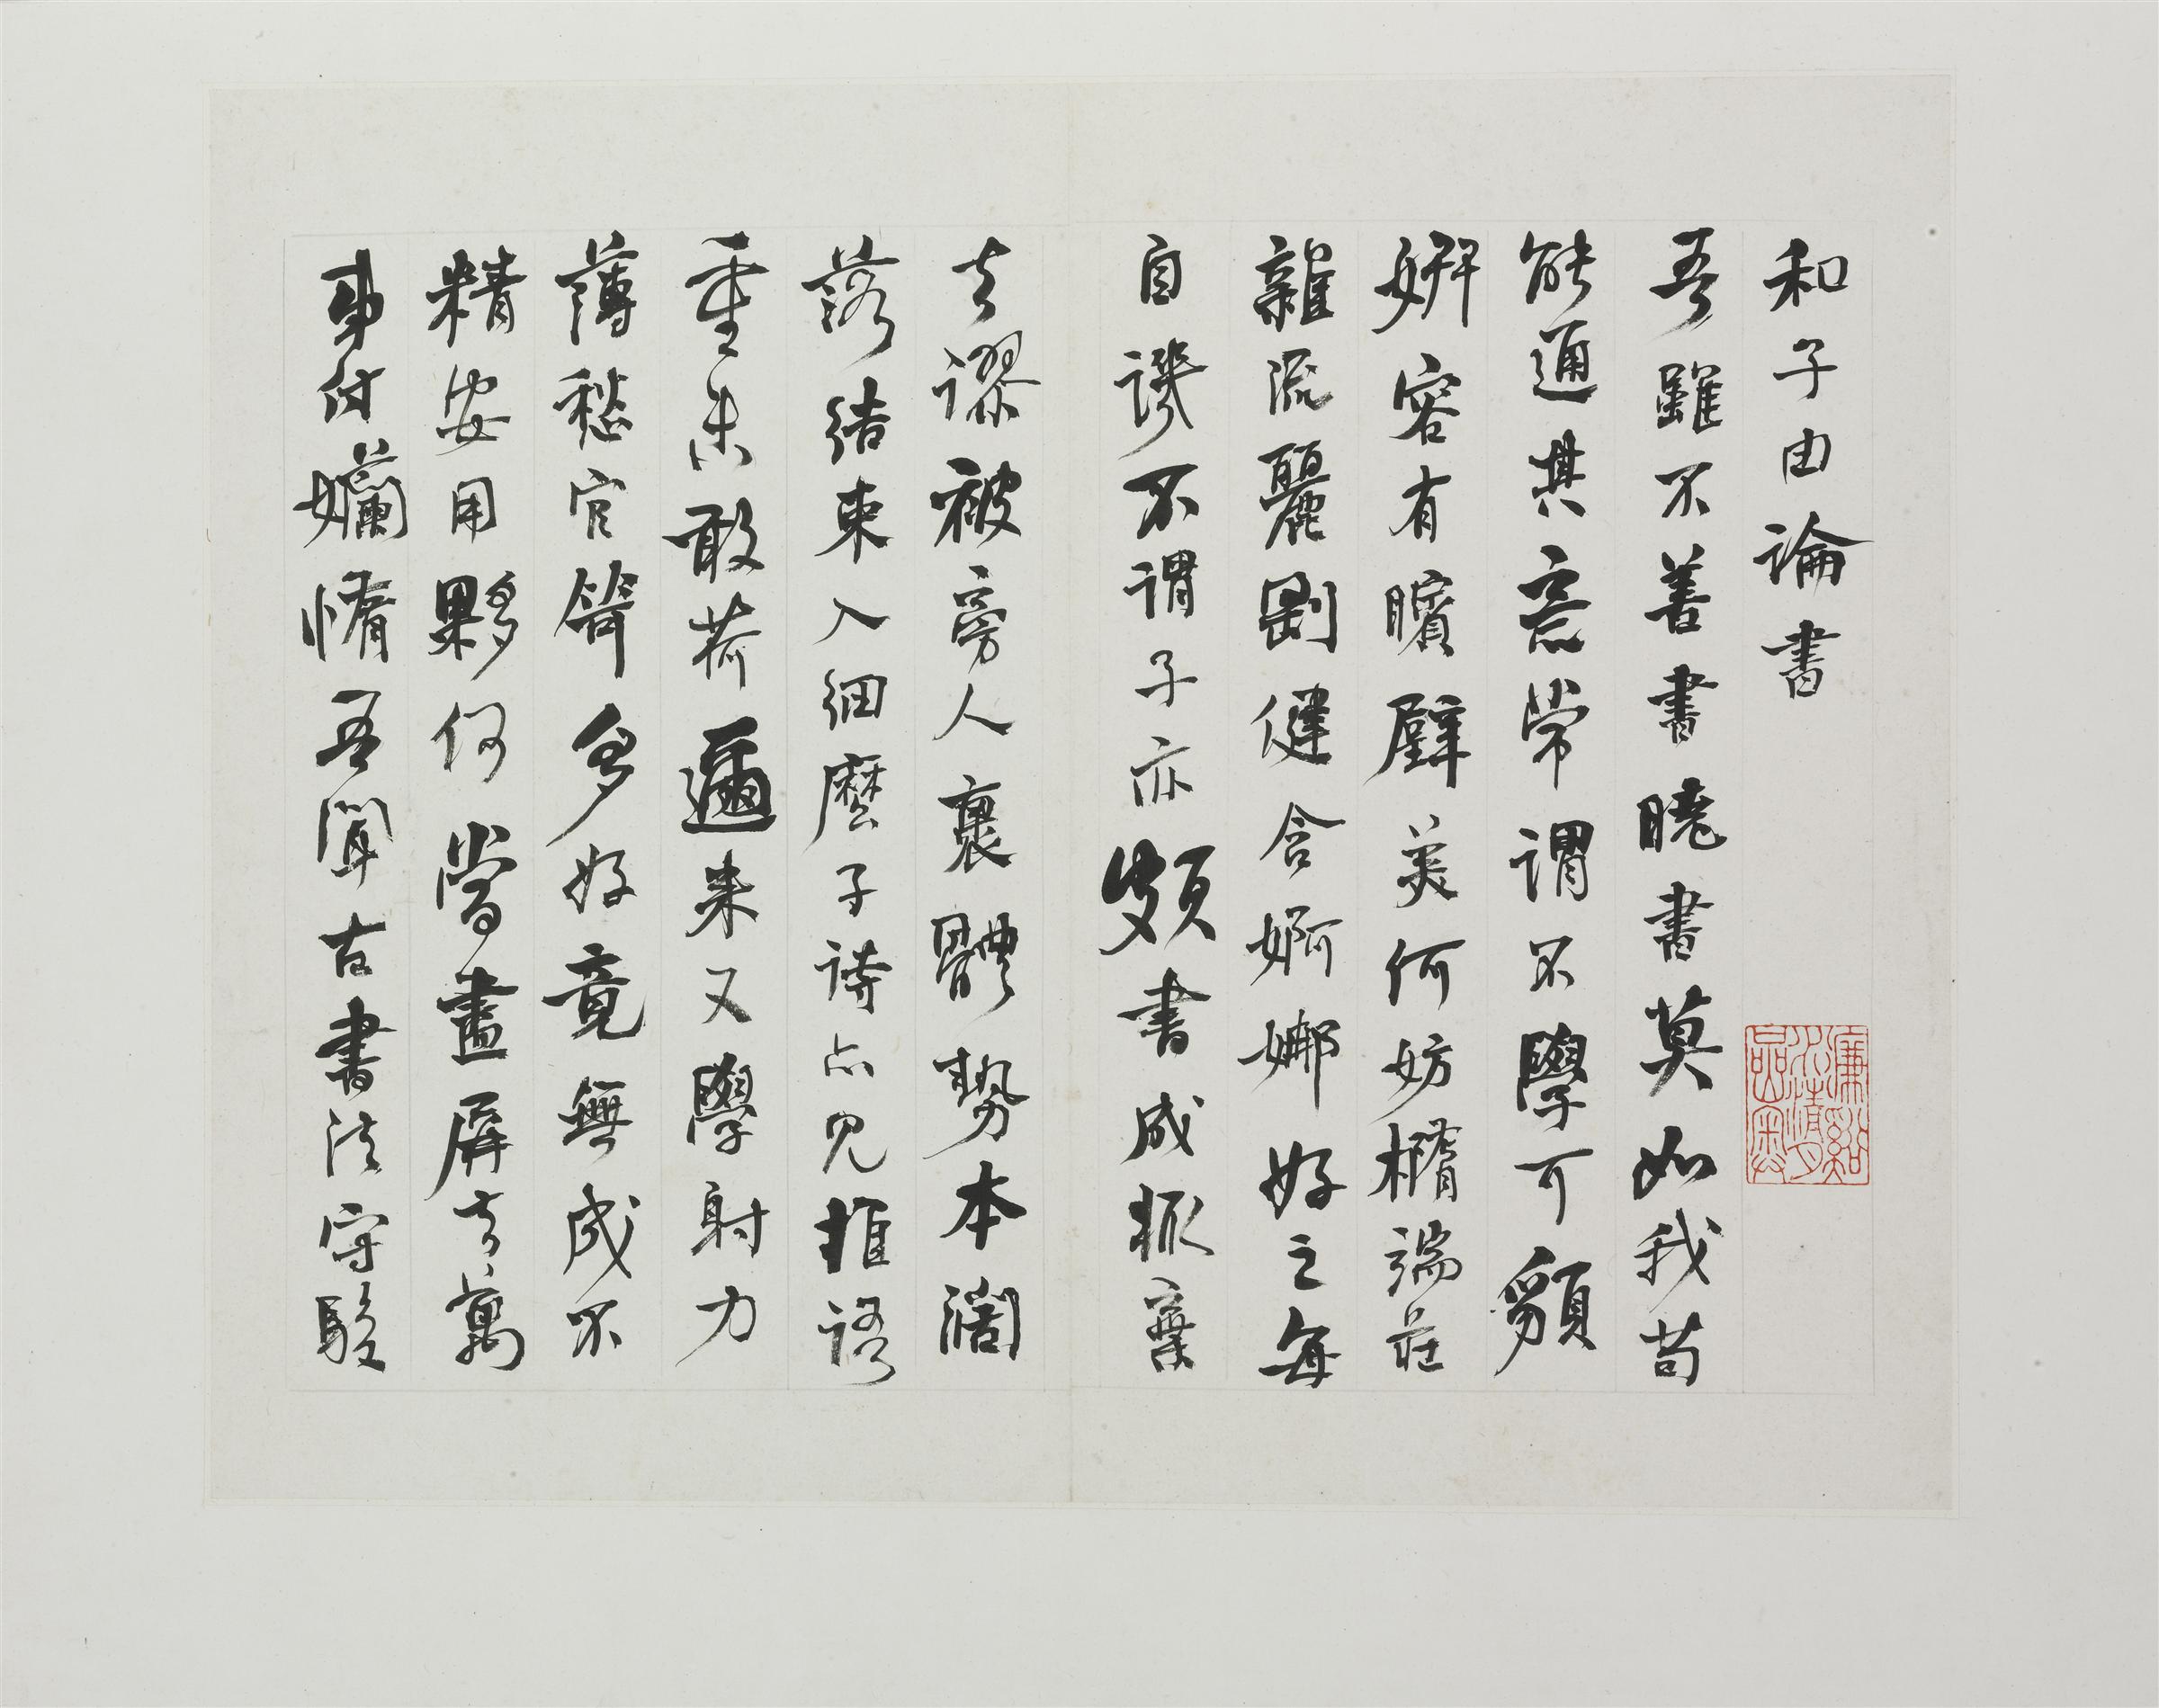 和子由論書
吾雖不善書曉書莫如我苟
能通其意常謂不學可䫉
妍容有矉璧美何妨橢端莊
雜流麗剛健含婀娜好之每
自譏不謂子亦頗書成輒棄
去謬被旁人裹體勢本闊
落結束入細麼子詩亦見推語
重未敢荷邇來又學射力
薄愁官笴多好竟無成不
精安用夥何當盡屏去萬
事付嬾惰吾聞古書法守駿